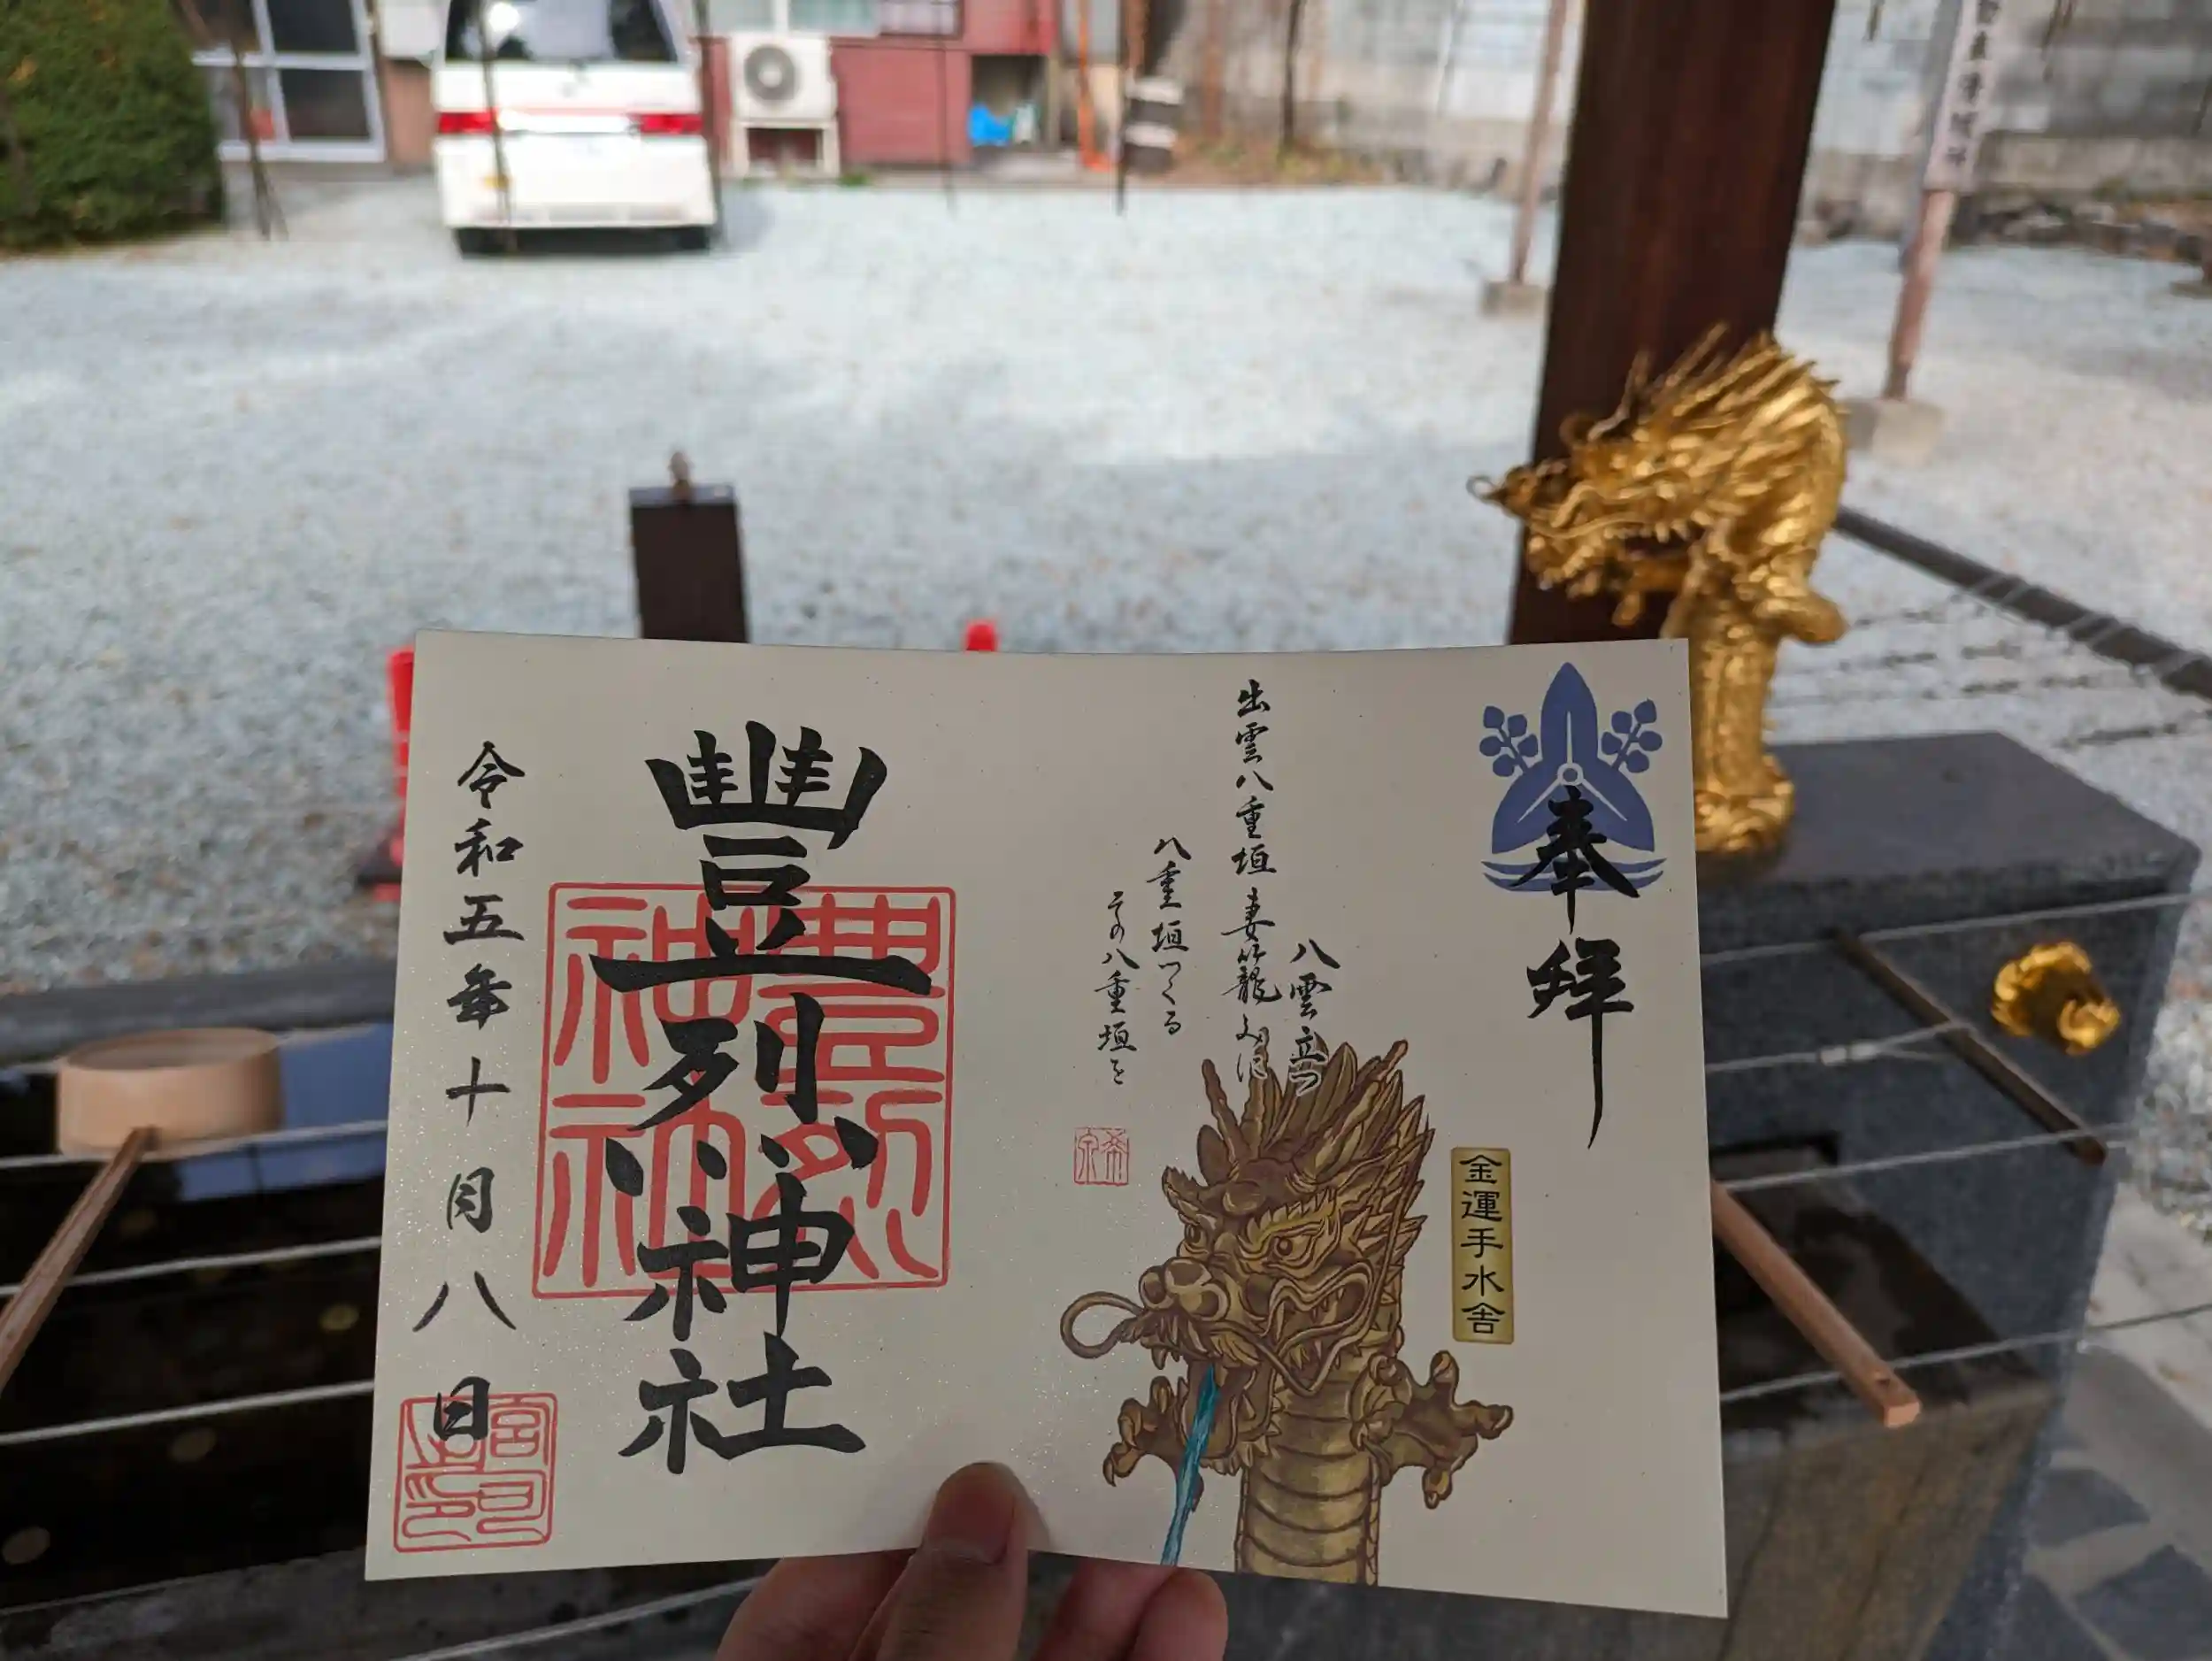 奉拝
金運手水舎
八雲立つ
出雲八重垣 妻籠みに
八重垣つくる
その八重垣を
豐烈神社
令和五年十月八日